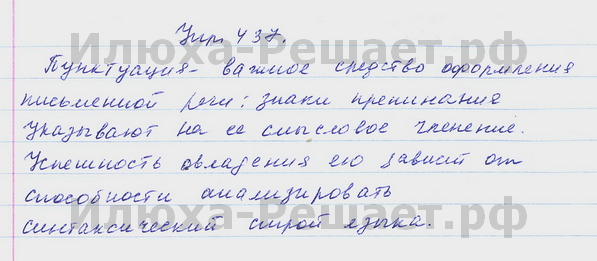 Упр. 437.
Илюха-Решает.рф
Пунктуация - важное средство оформления
письменной речи: знаки препинания
указывают на ее смысловое членение.
Успешность овладения ею зависит от
способности анализировать
синтаксический строй языка.
Илюха-Решает.рф